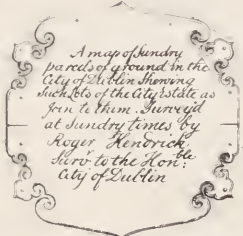 A map of Sundry
parcels of ground in the
City of Dublin Shewing
Such Lots of the City Estate as
Join to them. Survey'd
at Sundry times by
Roger Hendrick
Survr. to the Honble:
City of Dublin